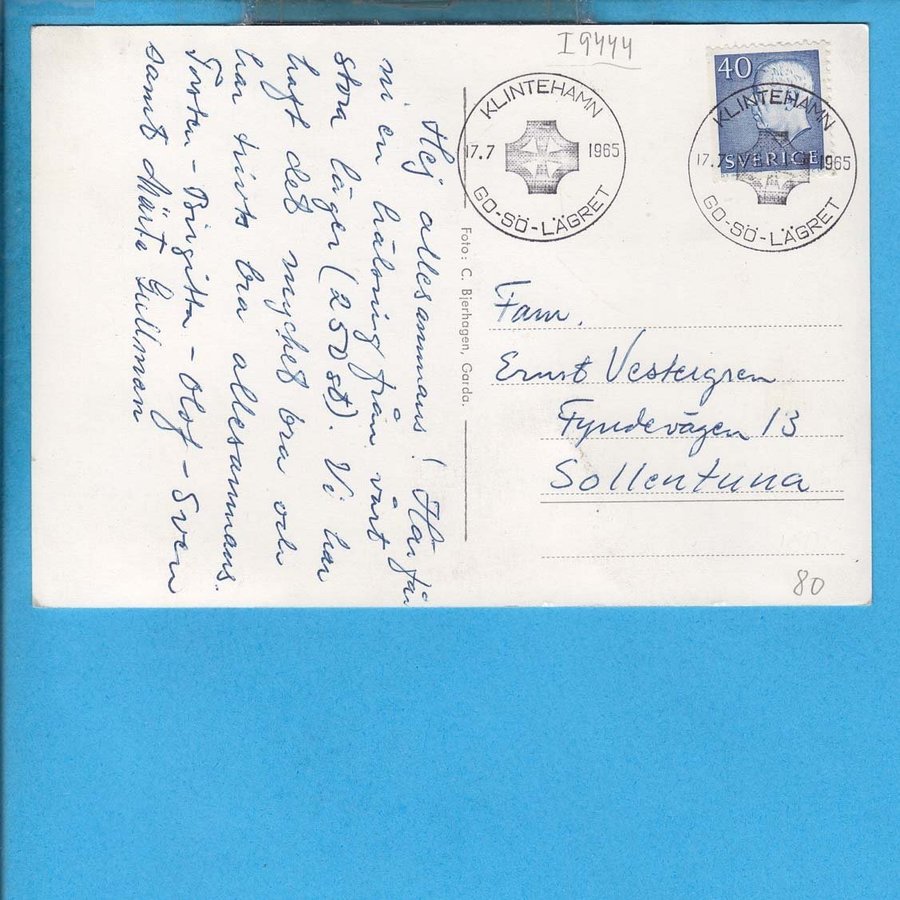 I 9444
Hej allesammans! Här får
ni en hälsning från vårt
stora läger (250 st). Vi har
haft det mycket bra och
har trivts bra allesammans.
Torsten - Birgitta - Olof - Sven
samt Märta Gullman
Foto: C. Bjerhagen, Garda.
KLINTEHAMN
17.7 1965
GO-SÖ-LÄGRET
40
SVERIGE
KLINTEHAMN
17.7 1965
GO-SÖ-LÄGRET
Fam.
Ernst Vestergren
Fyndevägen 13
Sollentuna
80